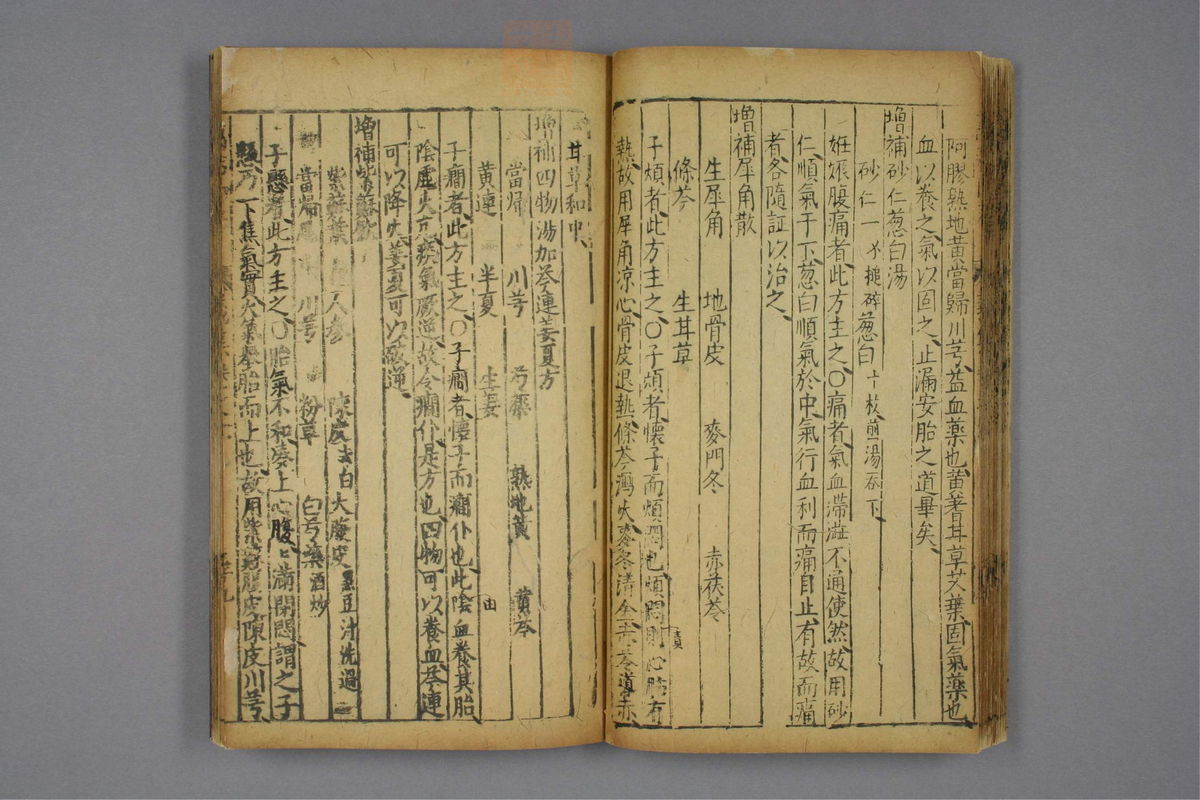 阿膠熟地黄當歸川芎益血藥也黄耆耳草艾葉固氣藥也
血以養之氣以固之止漏安胎之道畢矣
增補砂仁葱白湯
砂仁一 不搥碎葱白 十枝煎湯吞下
姙娠腹痛者此方主之〇痛者氣血滞澁不通使然故用砂
仁順氣于下葱白順氣於中氣行血利而痛自止有故而痛
者各隨証以治之
增補犀角散
生犀角 地骨皮 麥門冬 赤茯苓
條芩 生耳草
子煩者此方主之〇子煩者懷子而煩悶也煩悶責心肺有
熱故用犀角凉心骨皮退熱條芩瀉火麥冬清金赤苓導赤
耳草和中
增補四物湯加芩連姜夏方
當歸 川芎 芍藥 熟地黄 黄芩
黄連 半夏 生姜
子癎者此方主之〇子癎者懷子而癎仆也此陰血養其胎
陰虛火亢痰氣厥逆故令癎仆是方也四物可以養血芩連
可以降火姜夏可以破逆
增補紫蘇飲
紫蘇葉 人參 陳皮去白 大腹皮黑豆汁洗過
當歸 川芎 粉草 白芍藥酒炒
子懸者此方主之〇胎氣不和凑上心腹〻滿閉悶謂之子
懸乃下焦氣實大舉胎而上也故用紫蘇腹皮陳皮川芎